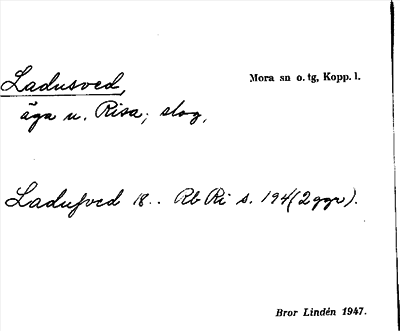 Ladusved,
Mora sn o. tg, Kopp. l.
äga u. Risa; skog,
Ladufved 18.. Rb Ri s. 194 (2 ggr).
Bror Lindén 1947.